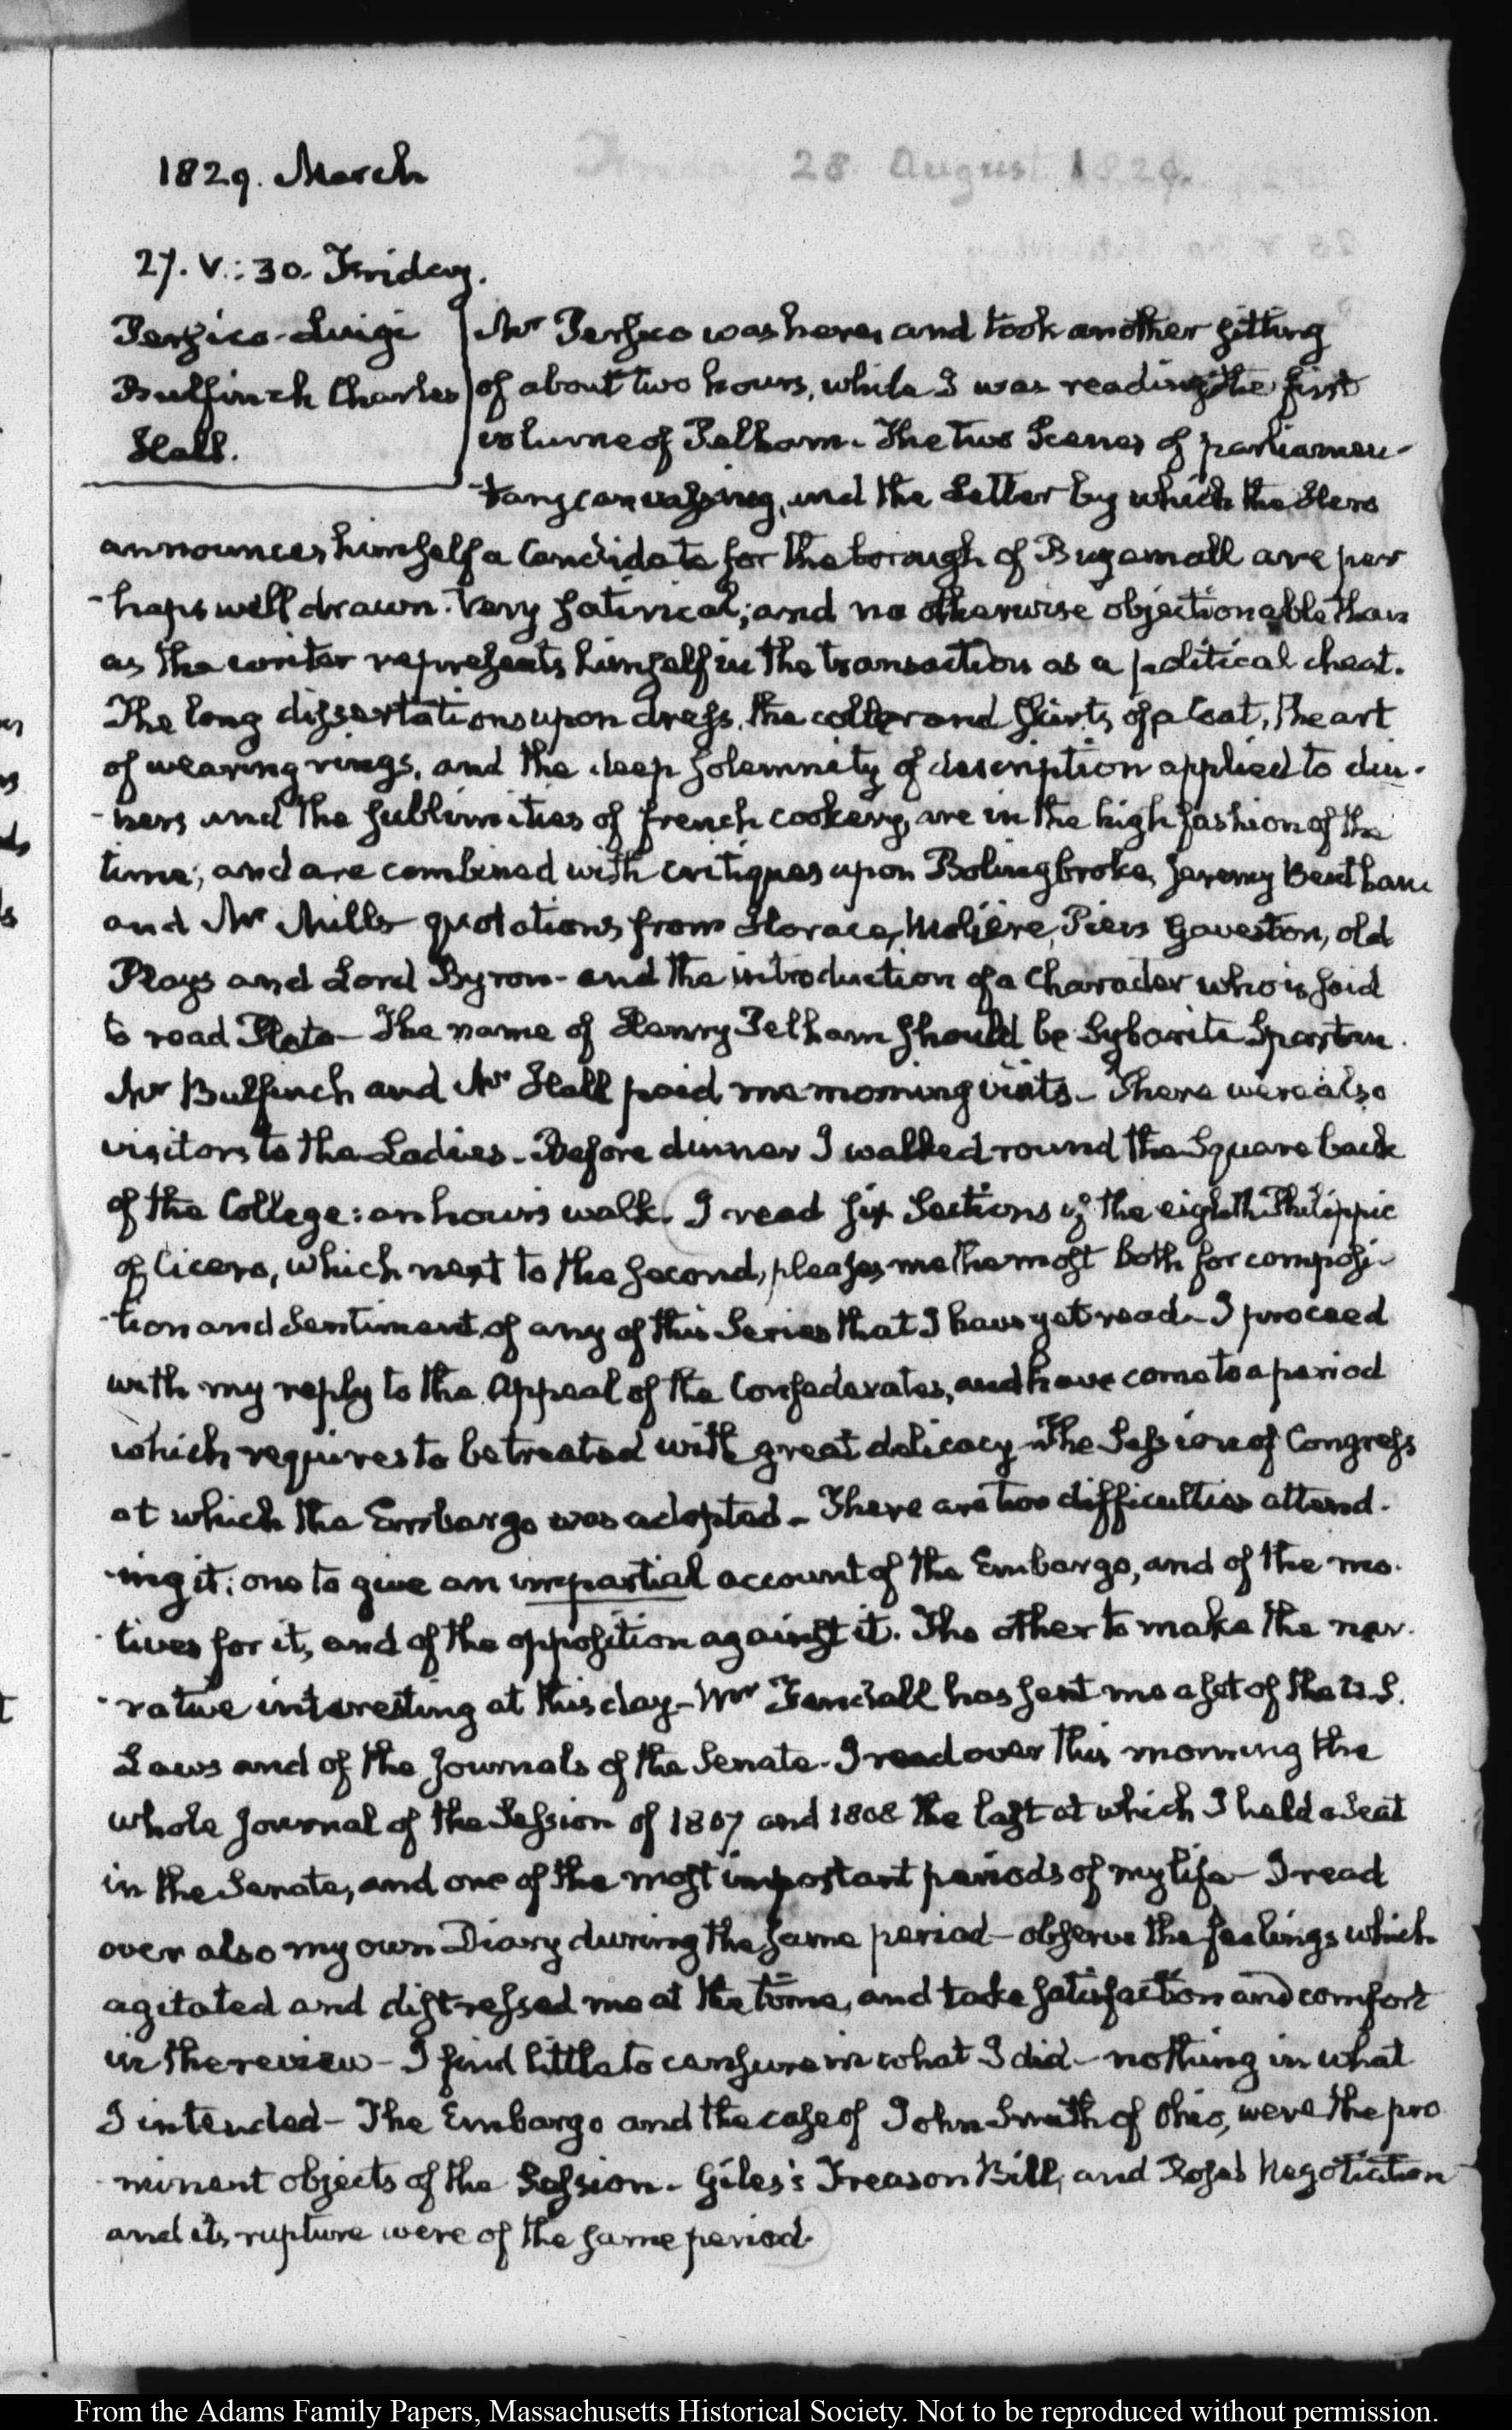 1829. March
28 August 1829.
27. V.: 30. Friday.
Persico-Luigi
Bulfinch Charles
Hall.
Mr Persico was here, and took another sitting
of about two hours, while I was reading the first
volume of Pelham. The two Scenes of parliamen-
-tary canvassing, and the Letter by which the Hero
announces himself a Candidate for the borough of Buyemall are per
-haps well drawn. Very satirical; and no otherwise objectionable than
as the writer represents himself in the transaction as a political cheat.
The long dissertations upon dress, the collar and skirts of a Coat, the art
of wearing rings, and the deep solemnity of description applied to din-
-ners and the sublimities of french cookery, are in the high fashion of the
time; and are combined with critiques upon Bolingbroke, Jeremy Bentham
and Mr Mills quotations from Horace, Moliére, Piers Gaveston, old
Plays and Lord Byron- and the introduction of a Character who is said
to read Plato- The name of Henry Pelham should be Sybarite Spartan.
Mr Bulfinch and Mr Hall paid me morning visits- There were also
visitors to the Ladies- Before dinner I walked round the Square back
of the College: an hour's walk. I read six Sections of the eighth Philippic
of Cicero, which next to the second, pleases me the most both for composi-
-tion and Sentiment of any of this Series that I have yet read- I proceed
with my reply to the Appeal of the Confederates, and have come to a period
which requires to be treated with great delicacy- The Session of Congress
at which the Embargo was adopted- There are two difficulties attend-
-ing it: one to give an impartial account of the Embargo, and of the mo-
-tives for it, and of the opposition against it. The other to make the nar-
-rative interesting at this day- Mr Fendall has sent me a set of the U.S.
Laws and of the Journals of the Senate- I read over this morning the
whole Journal of the Session of 1807 and 1808 the last at which I held a Seat
in the Senate, and one of the most important periods of my life- I read
over also my own Diary during the same period- observe the feelings which
agitated and distressed me at the time, and take satisfaction and comfort
in the review- I find little to censure in what I did- nothing in what
I intended- The Embargo and the case of John Smith of Ohio, were the pro
-minent objects of the Session- Giles's Treason Bill, and Rose's Negotiation
and its rupture were of the same period.
From the Adams Family Papers, Massachusetts Historical Society. Not to be reproduced without permission.